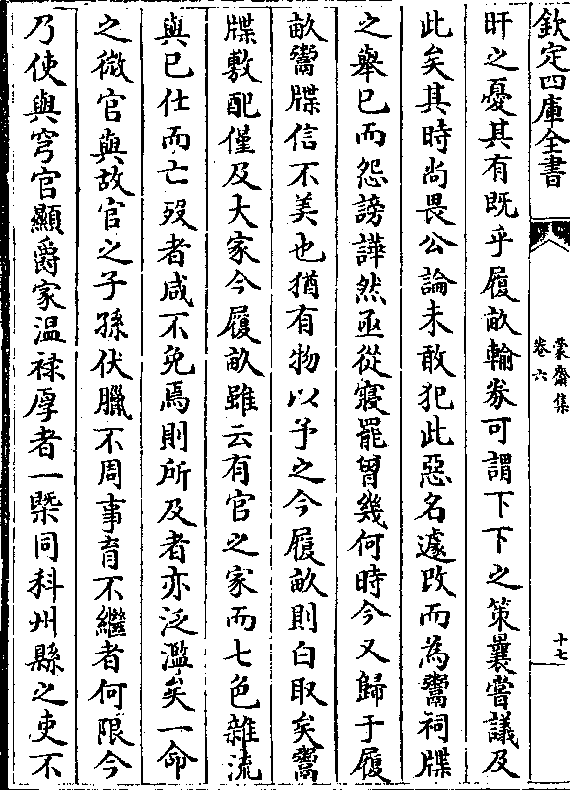 欽定四庫全書
蒙齋集
卷六
十七
旰之憂其有既乎履畝輸券可謂下下之策曩嘗議及
此矣其時尚畏公論未敢犯此惡名遽改而為鬻祠牒
之舉已而怨謗譁然亟從寢罷曾幾何時今又歸于履
畝鬻牒信不美也猶有物以予之今履畝則白取矣鬻
牒敷配僅及大家今履畝雖云有官之家而七色雜流
與已仕而亡歿者咸不免焉則所及者亦泛濫矣一命
之微官與故官之子孫伏臘不周事育不繼者何限今
乃使與穹官顯爵家温祿厚者一槩同科州縣之吏不